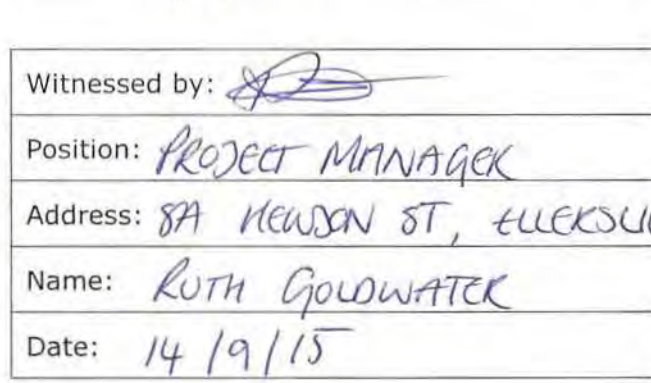 Witnessed by:
Position: PROJECT MANAGER
Address: 8A HEWSON ST,
Name: RUTH GOLDWATER
Date: 14/9/15